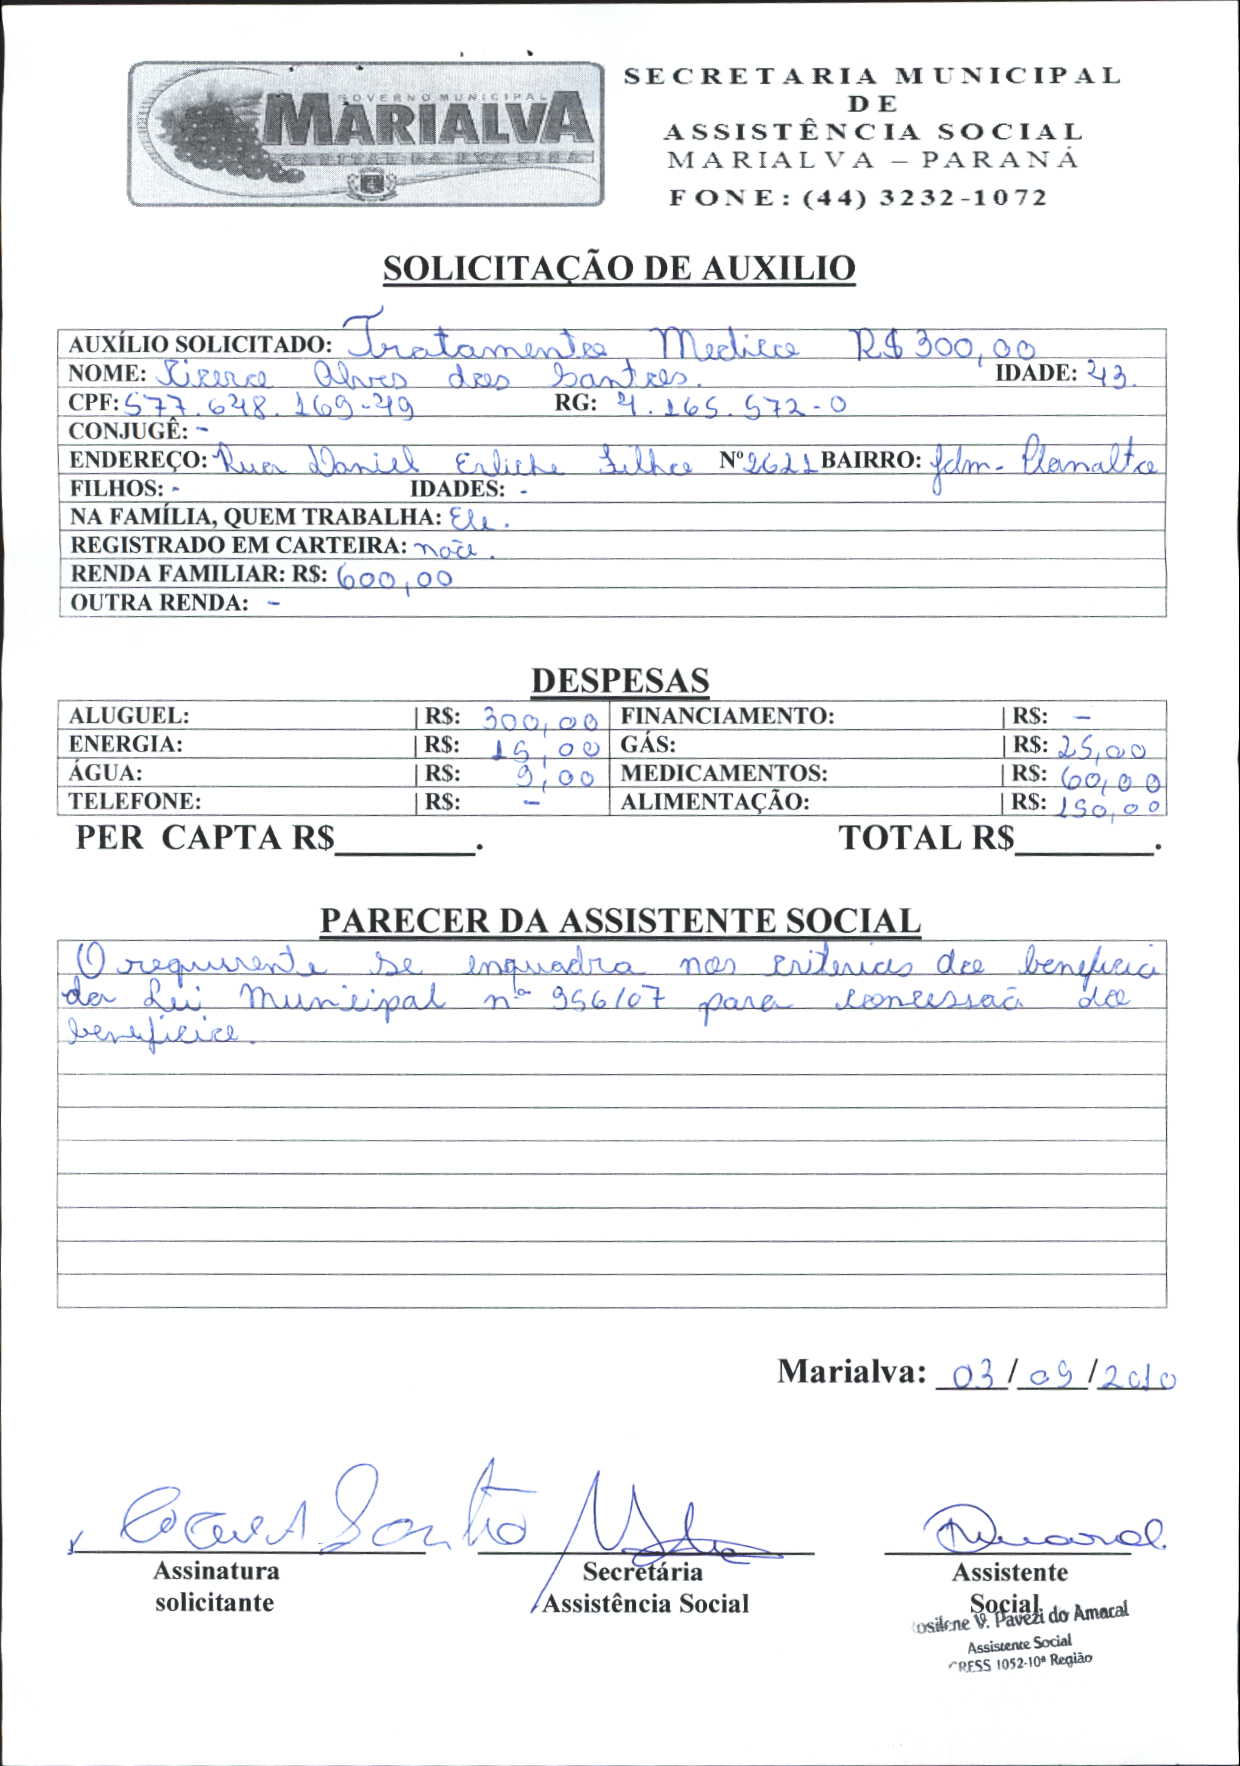 GOVERNO MUNICIPAL
MARIALVA
CAPITAL DA UVA FINA
SECRETARIA MUNICIPAL
DE
ASSISTÊNCIA SOCIAL
MARIALVA – PARANÁ
FONE: (44) 3232-1072
SOLICITAÇÃO DE AUXILIO
AUXÍLIO SOLICITADO: Tratamento Medico R$ 300,00
NOME: Alves dos Santos. IDADE: 43.
CPF: 577.648.169-49 RG: 4.165.572-0
CONJUGÊ: -
ENDEREÇO: Rua Daniel Filho Nº 2621 BAIRRO: Jdm. Planalto
FILHOS: - IDADES: -
NA FAMÍLIA, QUEM TRABALHA: Ele.
REGISTRADO EM CARTEIRA: não.
RENDA FAMILIAR: R$: 600,00
OUTRA RENDA: -
DESPESAS
ALUGUEL: | R$: 300,00 FINANCIAMENTO: | R$: -
ENERGIA: | R$: 15,00 GÁS: | R$: 25,00
ÁGUA: | R$: 9,00 MEDICAMENTOS: | R$: 60,00
TELEFONE: | R$: - ALIMENTAÇÃO: | R$: 150,00
PER CAPTA R$________. TOTAL R$________.
PARECER DA ASSISTENTE SOCIAL
O requerente se enquadra nos criterios do beneficio
da Lei Municipal nº 956/07 para concessão do
beneficio.
Marialva: 03/09/2010
Assinatura Secretária Assistente
solicitante Assistência Social Social
V. Pavezi do Amaral
Assistente Social
CRESS 1052-10ª Região